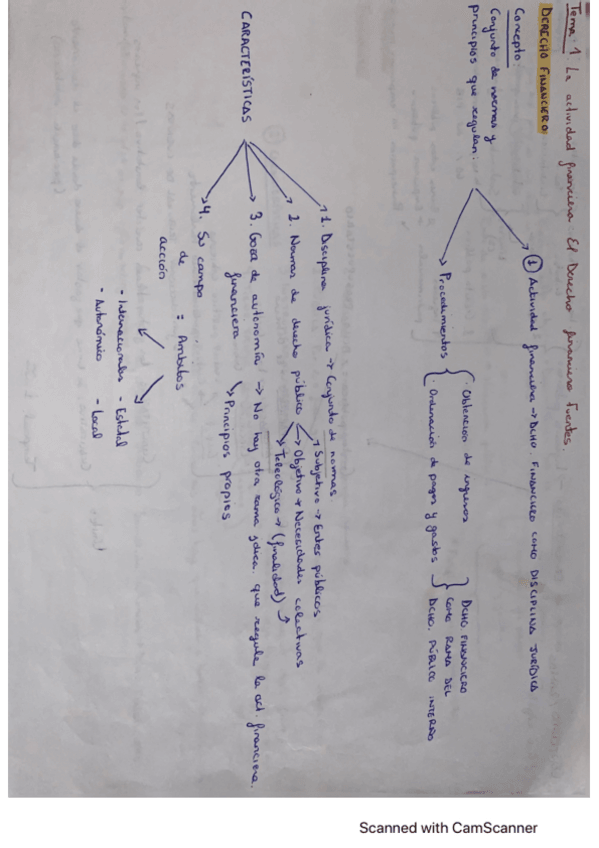 Tema 1: La actividad financiera. El Derecho financiero. Fuentes.
DERECHO FINANCIERO
Concepto:
Conjunto de normas y
principios que regulan.
① Actividad financiera → DCHO. FINANCIERO COMO DISCIPLINA JURÍDICA
Procedimientos
· Obtención de ingresos
· Ordenación de pagos y gastos
DCHO FINANCIERO
COMO RAMA DEL
DCHO. PÚBLICO INTERNO
CARACTERÍSTICAS
1. Disciplina jurídica → Conjunto de normas.
2. Normas de derecho público
Subjetivo → Entes públicos
Objetivo → Necesidades colectivas
Teleológico → (finalidad)
3. Goza de autonomía → No hay otra rama jdica. que regule la act. financiera.
financiera
Principios propios
4. Su campo
de
acción
: Ámbitos
- Internacionales - Estatal
- Autonómico - Local
Scanned with CamScanner